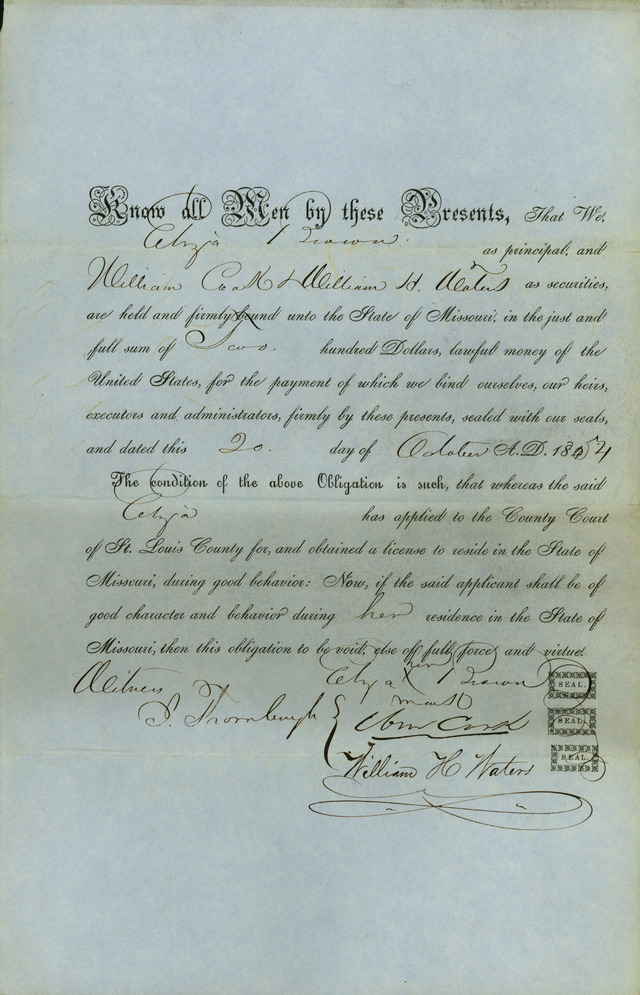 Know all Men by these Presents, That We,
Brown. as principal, and
William Cook & William H. Waters as securities,
are held and firmly bound unto the State of Missouri, in the just and
full sum of Two. hundred Dollars, lawful money of the
United States, for the payment of which we bind ourselves, our heirs,
executors and administrators, firmly by these presents, sealed with our seals,
and dated this 20. day of October A. D. 1854
The condition of the above Obligation is such, that whereas the said
has applied to the County Court
of St. Louis County for, and obtained a license to reside in the State of
Missouri, during good behavior: Now, if the said applicant shall be of
good character and behavior during her residence in the State of
Missouri, then this obligation to be void, else of full force and virtue.
her
Witness Brown SEAL.
mark
Thornburgh Wm Cook SEAL.
William H Waters SEAL.